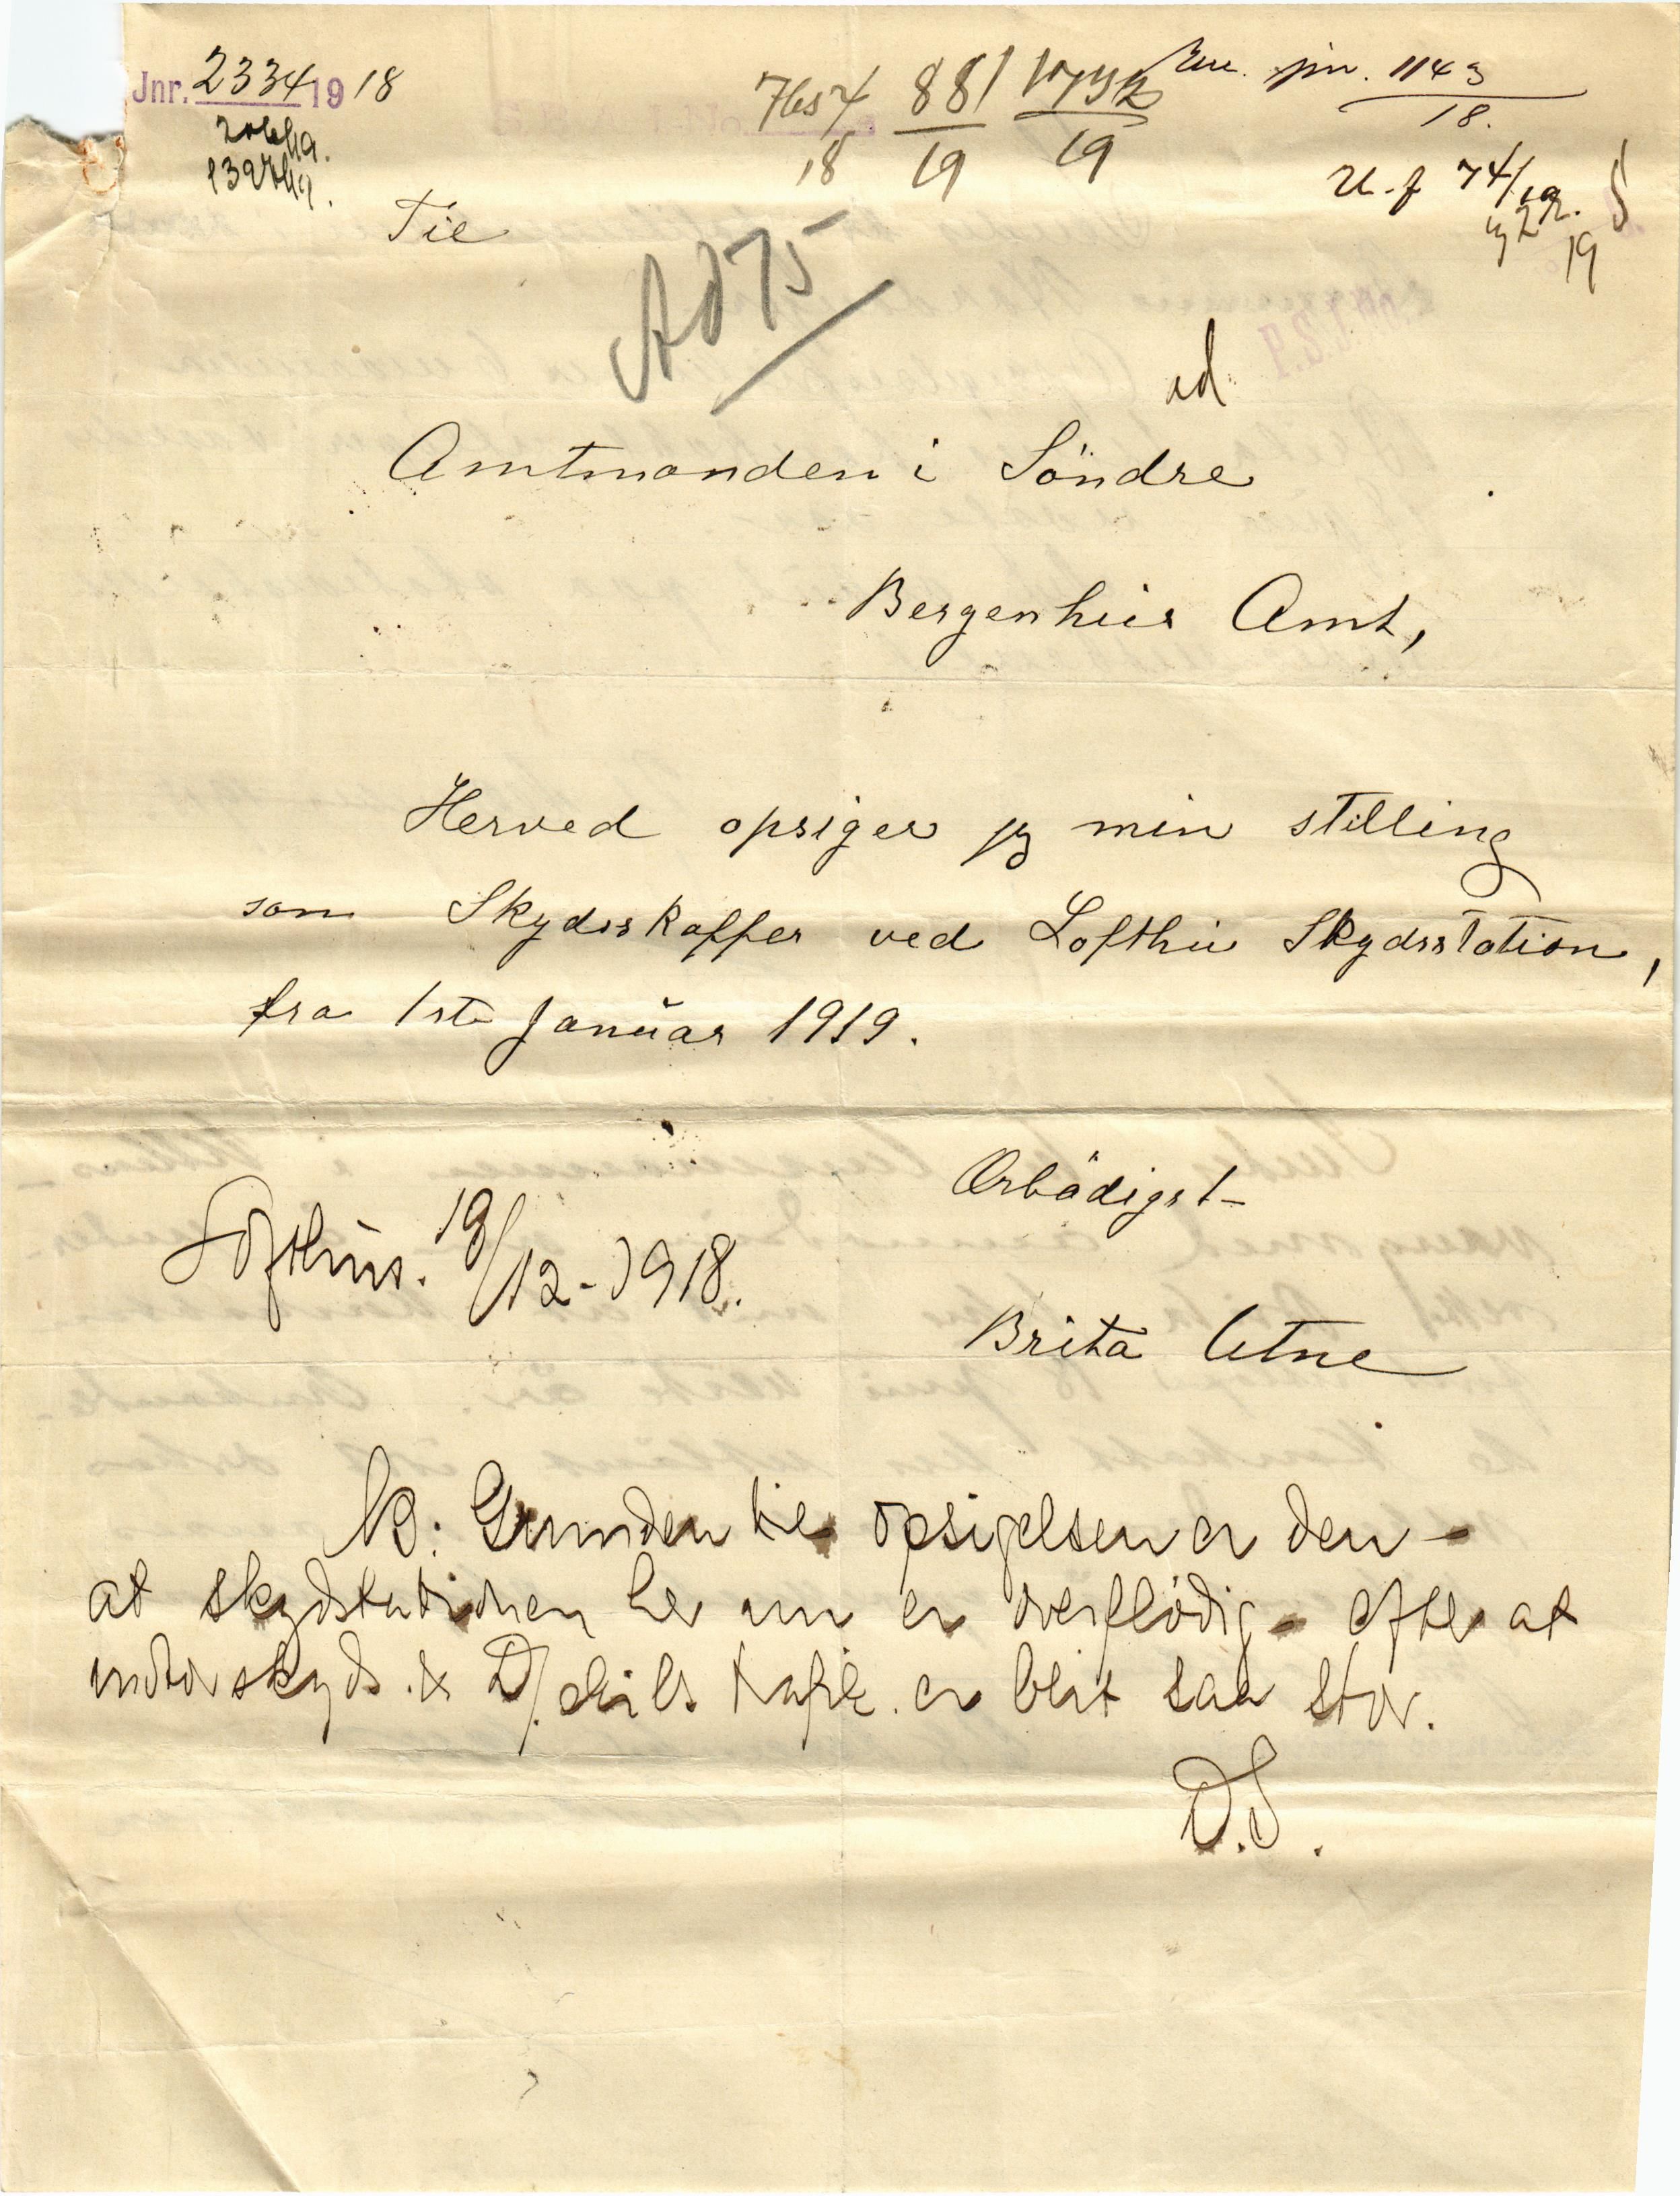 Jnr. 2334 19 18
881
19
19
18
jnr. 1143
18.
19
Til
Ad 75
Amtmanden i Söndre
Bergenhus Amt,
Herved opsiger jeg min stilling
som Skydsskaffer ved Lofthus Skydsstation,
fra 1ste Januar 1919.
Ærbödigst
Lofthus. 19/12-1918.
Brita Utne
NB: Grunden til opsigelsen er den -
at skydstationen her nu er overflödig - efter at
motorskyds & D/skibs trafik. er blit saa stor.
D.S.